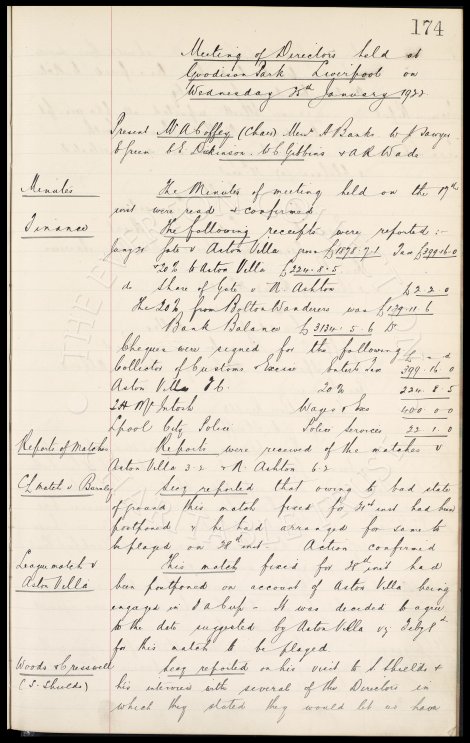 174
Meeting of Directors held at
Goodison Park Liverpool on
Wednesday 25th January 1922
Present Mr W A Coffey (Chair) Messrs A Banks. W J Sawyer
B Green. C E. Dickinson. W C Gibbins & A R Wade
Minutes
The Minutes of meeting held on the 17th
inst were read & confirmed
Finance
The following receipts were reported :-
Jany 21 Gate v Aston Villa £1878.7.1 Tax £399.16.0
20% to Aston Villa £224.8.5
do Share of Gate v N. Ashton £2.2.0
The 20% from Bolton Wanderers was £139.11.6
Bank Balance £3134.5.6 Dr
Cheques were signed for the following £ s d
Collector of Customs & Excise Entertn Tax 399.16.0
Aston Villa F C. 20% 224.8.5
T H McIntosh Wages & Exes 400.0.0
Lpool City Police Police Services 22.1.0
Reports of Matches
Reports were received of the matches v
Aston Villa 3.2 & N. Ashton 6.2
CL match v Burnley
Secy reported that owing to bad state
of ground this match fixed for 21st inst had been
postponed & he had arranged for same to
be played on 28th inst. Action confirmed
League match v
Aston Villa
This match fixed for 28th inst had
been postponed on account of Aston Villa being
engaged in F A Cup - It was decided to agree
to the date suggested by Aston Villa viz Feby 1st
for this match to be played
Woods & Cresswell
(S. Shields)
Secy reported on his visit to S. Shields &
his interview with several of the Directors in
which they stated they would let us have